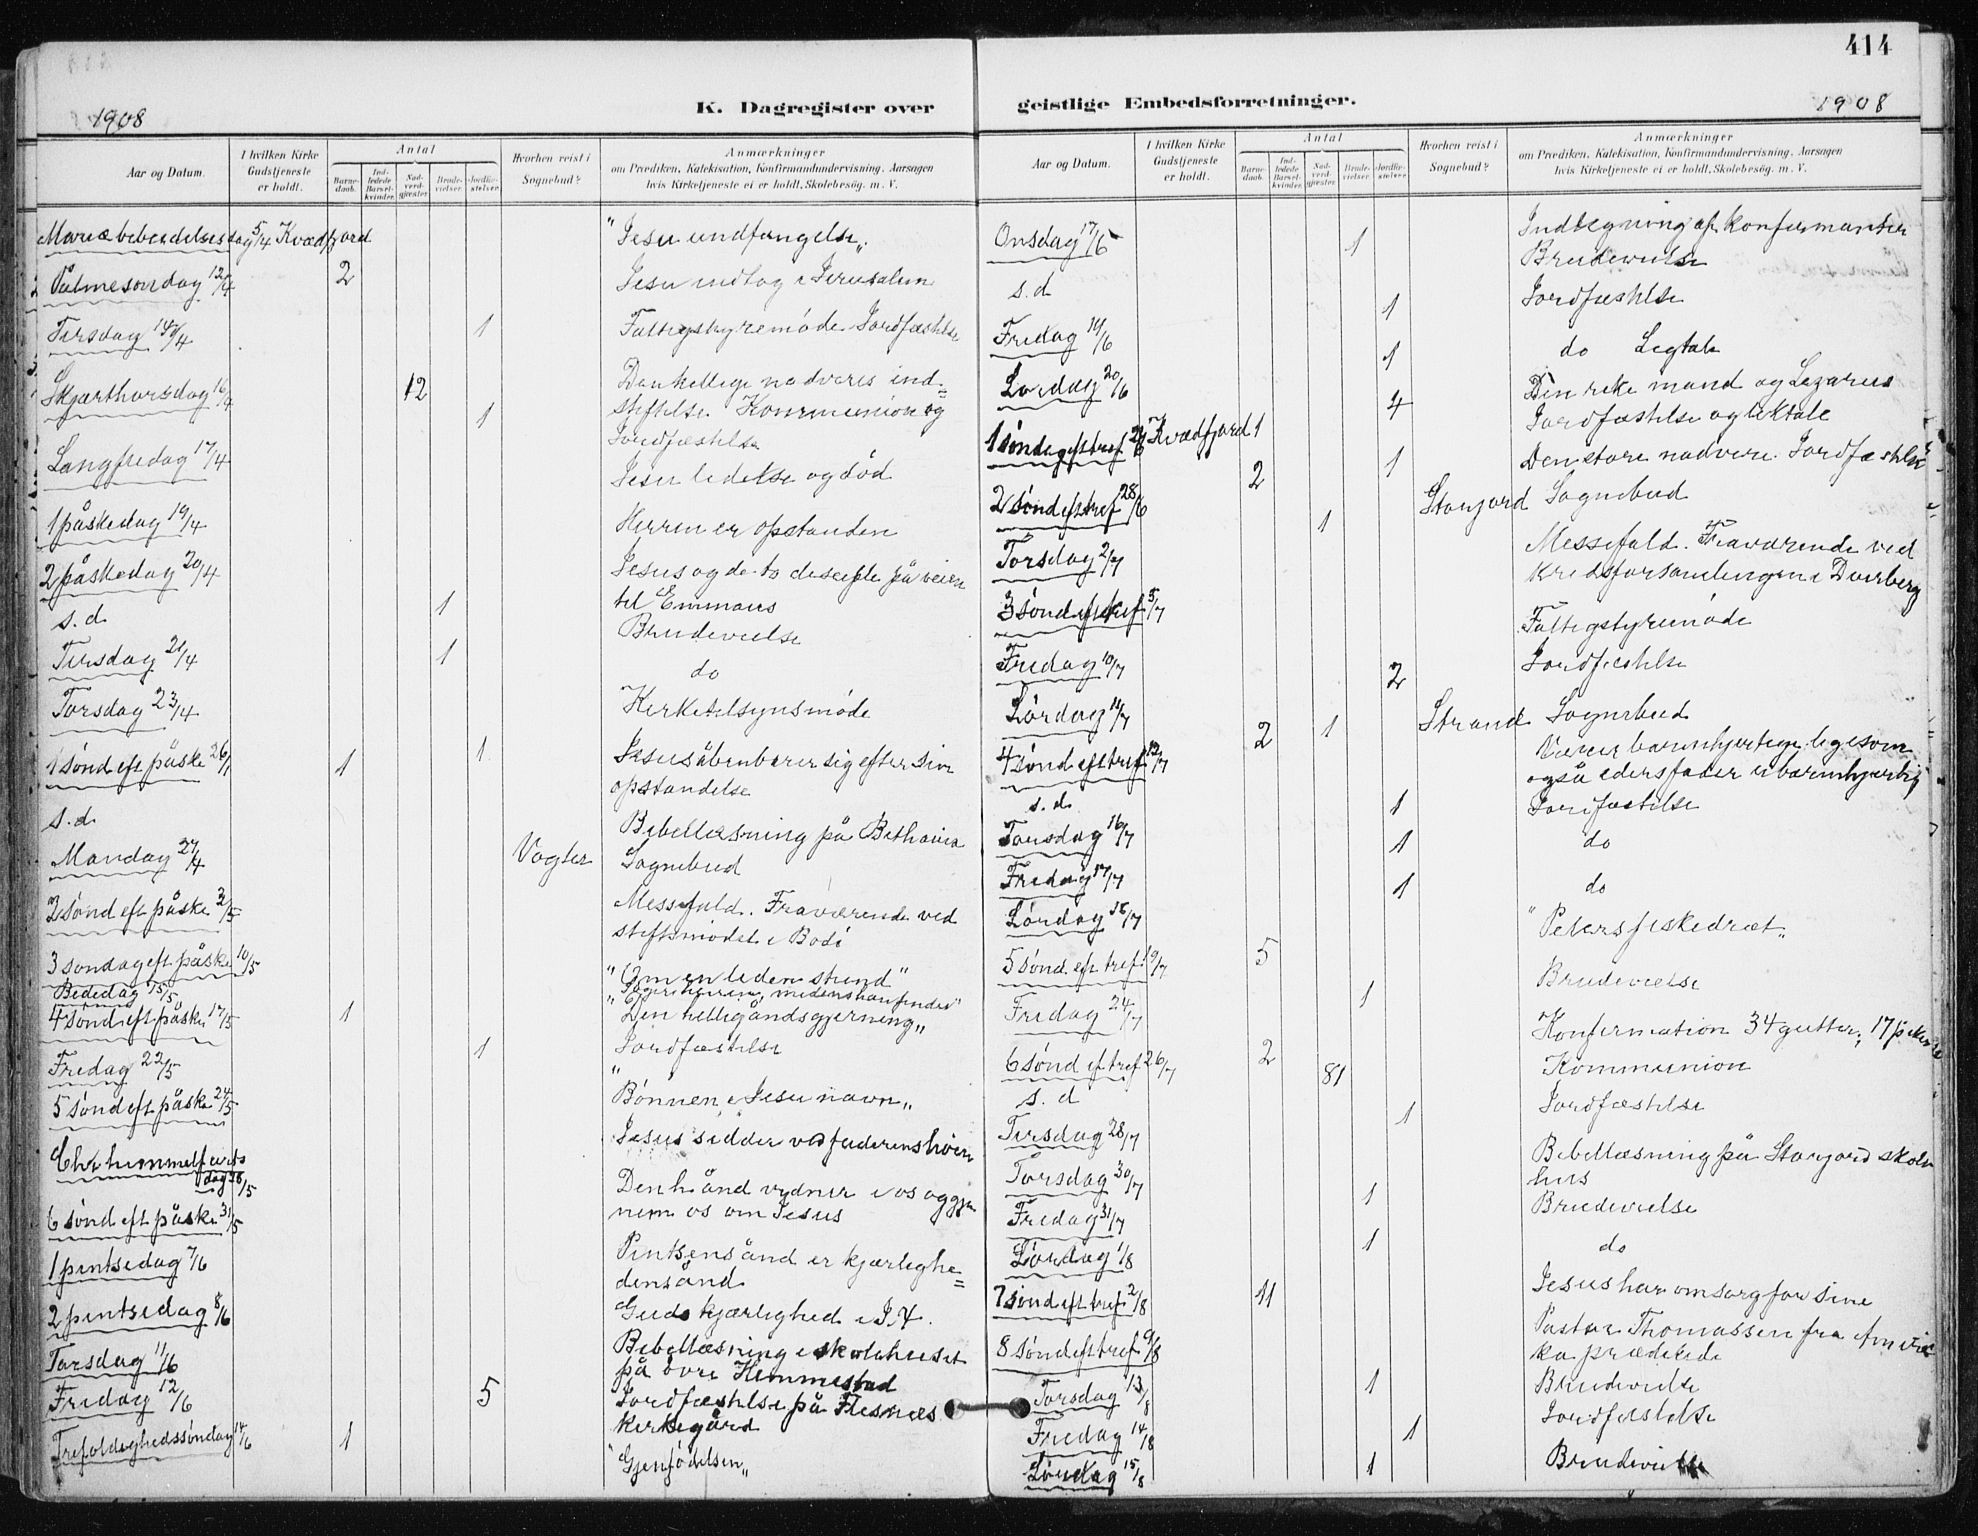 414
1908
K. Dagregister over
Aar og Datum.
I hvilken Kirke Gudstjeneste er holdt.
Antal
Barne-daab.
Ind-ledede Barsel-kvinder.
Nad-verd-gjester.
Brude-vielser.
Jordfæ-stelser.
Hvorhen reist i Sognebud?
Anmærkninger
om Prædiken, Katekisation, Konfirmandundervisning, Aarsagen
hvis Kirketjeneste ei er holdt, Skolebesøg. m. V.
Mariæ bebudelsesdag 5/4 Kvædfjord "Jesu undfangelse"
Palmesøndag 12/4 2 Jesu indtog i Jerusalem
Tirsdag 14/4 1 Fattigstyremöde Jordfæstelse
Skjærthorsdag 16/4 12 Den hellige nadveres ind=
1 stiftelse. Kommunion og
Jordfæstelse
Langfredag 17/4 Jesu lidelse og död
1 påskedag 19/4 Herren er opstanden
2 påskedag 20/4 Jesus og de to disciple på veien
til Emmaus
s.d. 1 Brudevielse
Tirsdag 21/4 1 do
Torsdag 23/4 Kirketilsynsmöde
1 sönd eft påske 26/4 1 1 Jesus åbenbarer sig efter sin
opstandelse
s.d. Bibellæsning på Bethania
Mandag 27/4 Vogter Sognebud
2 sönd eft påske 3/5 Messefald. Fraværende ved
stiftsmödet i Bodö
3 söndag eft påske 10/5 "Om en liden stund"
Bededag 15/5
4 sönd eft påske 17/5 1 "Den helligåndsgjerning"
Fredag 22/5 1 Jordfæstelse
5 sönd eft påske 24/5 "Bönnen i Jesu navn"
Chr himmelfarts
dag 28/5 Jesus sidder ved faderens höire
6 sönd eft påske 31/5 Den h ånd vidner i os og gjen
nem os om Jesus
1 pintsedag 7/6 Pintsens ånd er kjærlighe=
dens ånd
2 pintsedag 8/6 Guds kjærlighed i J. X.
Torsdag 11/6 Bibellæsning i skolehuset
på övre Hemmestad
Fredag 12/6 5 Jordfæstelse på Flesnes
kirkegård
Trefoldighedssöndag 14/6 1 "Gjenfödelsen"
geistlige Embedsforretninger.
1908
Aar og Datum.
I hvilken Kirke Gudstjeneste er holdt.
Antal
Barne-daab.
Ind-ledede Barsel-kvinder.
Nad-verd-gjester.
Brude-vielser.
Jordfæ-stelser.
Hvorhen reist i Sognebud?
Anmærkninger
om Prædiken, Katekisation, Konfirmandundervisning, Aarsagen
hvis Kirketjeneste ei er holdt, Skolebesög. m. V.
Indtegning af konfirmanter
Onsdag 17/6 1 Brudevielse
s.d 1 Jordfæstelse
Fredag 19/6 1 do Ligtale
Lördag 20/6 4 Den rike mand og Lazarus
Jordfæstelse og liktale
1 söndag eft tref 21/6 Kvædfjord 1 1 Den store nadvere. Jordfæstelse
2 sönd eft tref 28/6 2 1 Storjord Sognebud
Torsdag 2/7 Messefald. Fraværende ved
kredsforsamlingen i Dverberg
3 sönd eft tref 5/7 Fattigstyremöde
Fredag 10/7 2 Jordfæstelse
Lördag 11/7 1 Strand Sognebud
4 sönd eft tref 12/7 2 Værer barmhjertige ligesom
også eders fader er barmhjertig
s.d. 1 Jordfæstelse
Torsdag 16/7 1 do
Fredag 17/7 1 do
Lördag 18/7 "Peters fiskedræt"
5 sönd eft tref 19/7 5 Brudevielse
Fredag 24/7 1 Konfirmation 34 gutter, 17 piker
6 sönd eft tref 26/7 2 81 Kommunion
s.d 1 Jordfæstelse
Tirsdag 28/7 Bibellæsning på Storjord skole
hus
Torsdag 30/7 1 Brudevielse
Fredag 31/7 1 do
Lördag 1/8
7 sönd eft tref 2/8 11 Jesus har omsorg for sine
8 sönd eft tref 9/8 Pastor Thomassen fra Ameri
ka prædikede
Torsdag 13/8 1 Brudevielse
Fredag 14/8 1 Jordfæstelse
Lördag 15/8 1 Brudevielse